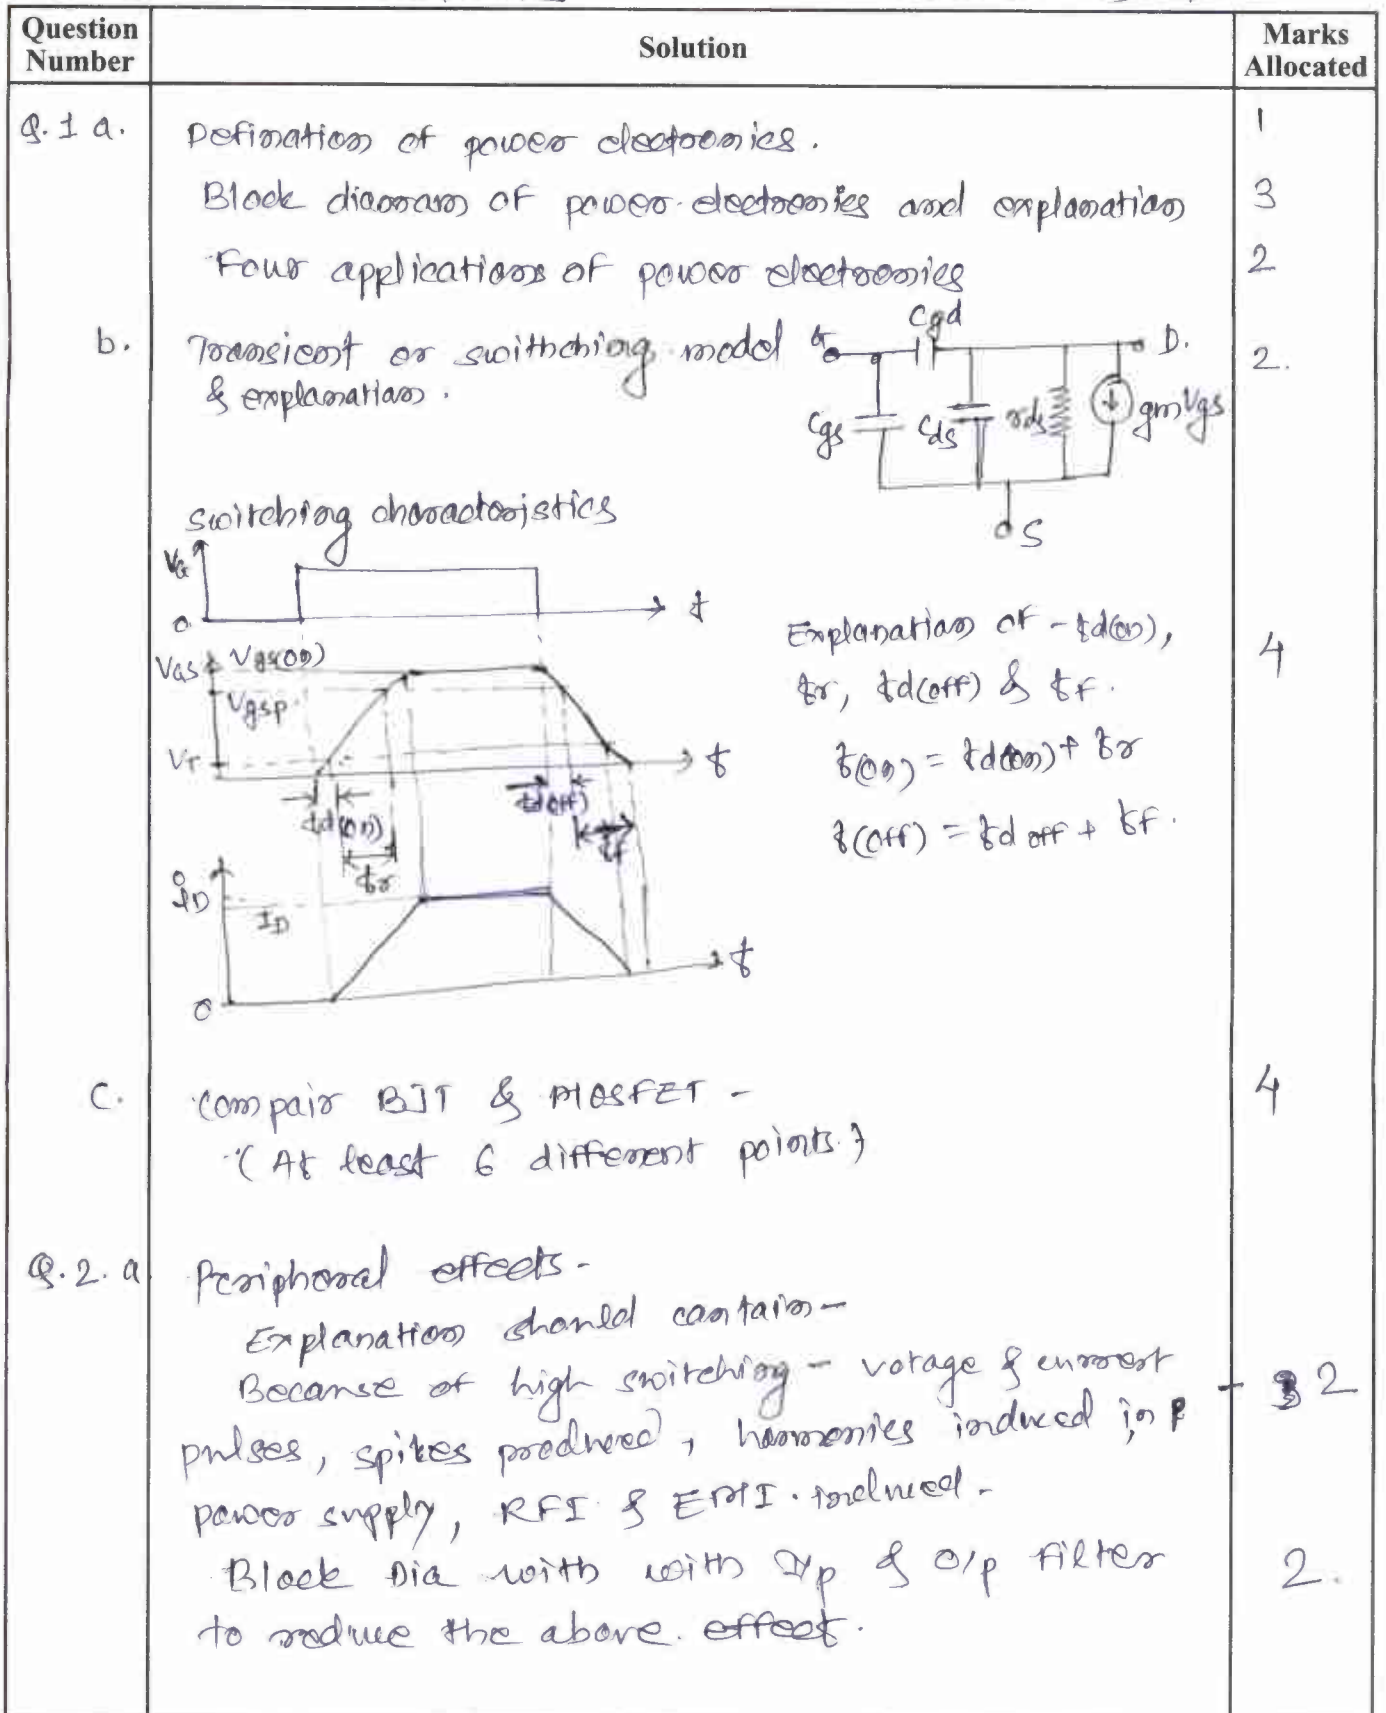 Question Number
Solution
Marks Allocated
Q.1 a.
Defination of power electronics.
1
Block diagram of power electronics and explanation
3
Four applications of power electronics
2
b.
Transient or swithching model
& explanation.
2.
G
Cgd
D.
Cgs
Cds
rds
gmVgs
S
switching characteristics
VG
0
t
VGS
Vgs(on)
Vgsp
VT
t
td(on)
tr
td(off)
tf
iD
ID
0
t
Explanation of - td(on),
tr, td(off) & tf.
t(on) = td(on) + tr
t(off) = td off + tf.
4
C.
Compair BJT & MOSFET -
(At least 6 different points.)
4
Q.2. a
Peripheral effects -
Explanation should contain -
Because of high switching - votage & current
2
pulses, spikes produced, harmonics induced in
power supply, RFI & EMI. induced -
Block Dia with with I/p & O/p filter
2.
to reduce the above. effect.